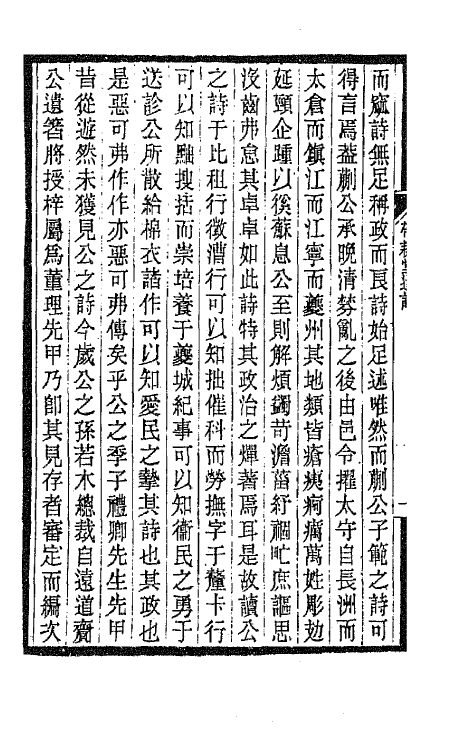 而窳詩無足稱政而良詩始足述唯然而蒯公子範之詩可
得言焉蓋蒯公承晚清棼亂之後由邑令擢太守自長洲而
太倉而鎮江而江寧而夔州其地類皆瘡痍痾癘萬姓彫攰
延頸企踵以徯蘇息公至則解煩蠲苛澹菑紓禍甿庶謳思
沒齒弗怠其卓卓如此詩特其政治之煇著焉耳是故讀公
之詩于比租行徵漕行可以知拙催科而勞撫字于釐卡行
可以知黜搜括而崇培養于夔城紀事可以知衞民之勇于
送診公所散給棉衣諸作可以知愛民之摯其詩也其政也
是惡可弗作作亦惡可弗傳矣乎公之季子禮卿先生先甲
昔從遊然未獲見公之詩今歲公之孫若木總裁自遠道齎
公遺箸將授梓屬爲董理先甲乃卽其見存者審定而編次